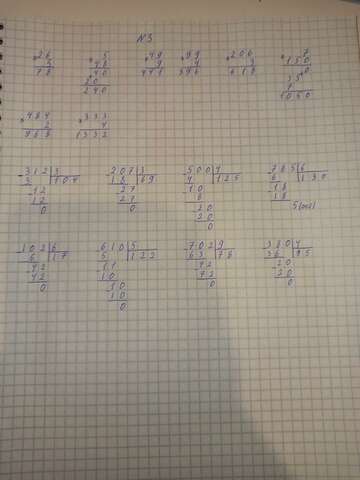 N3
×26 5 ×49 ×99 ×206 ×7
3 ×48 9 4 3 150
78 40 441 396 618 35
20 7
240 1050
×484 ×333
2 4
968 1332
-312|3 -207|3 -500|4 -785|6
3 |104 18 |69 4 |125 6 |130
-12 -27 -10 -18
12 27 8 18
0 0 -20 5(ост)
20
0
-102|6 -610|5 -702|9 -380|4
6 |17 5 |122 63 |78 36 |95
-42 -11 -72 -20
42 10 72 20
0 -10 0 0
10
0